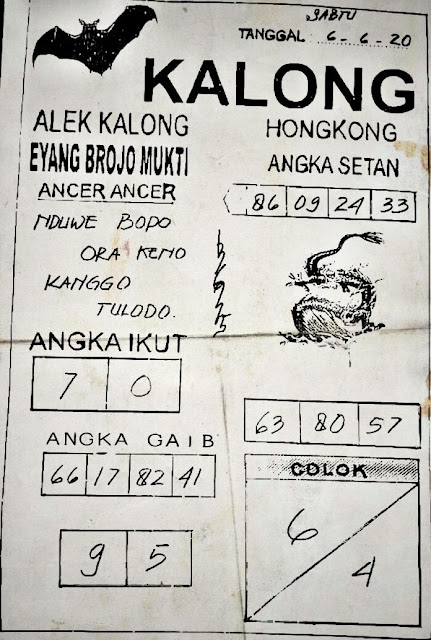 SABTU
TANGGAL : 6 - 6 - 20
KALONG
ALEK KALONG
EYANG BROJO MUKTI
ANCER ANCER
NDUWE BOPO
ORA KENO
KANGGO
TULODO.
HONGKONG
ANGKA SETAN
86 09 24 33
ANGKA IKUT
7 0
63 80 57
ANGKA GAIB
66 17 82 41
COLOK
6
4
9 5